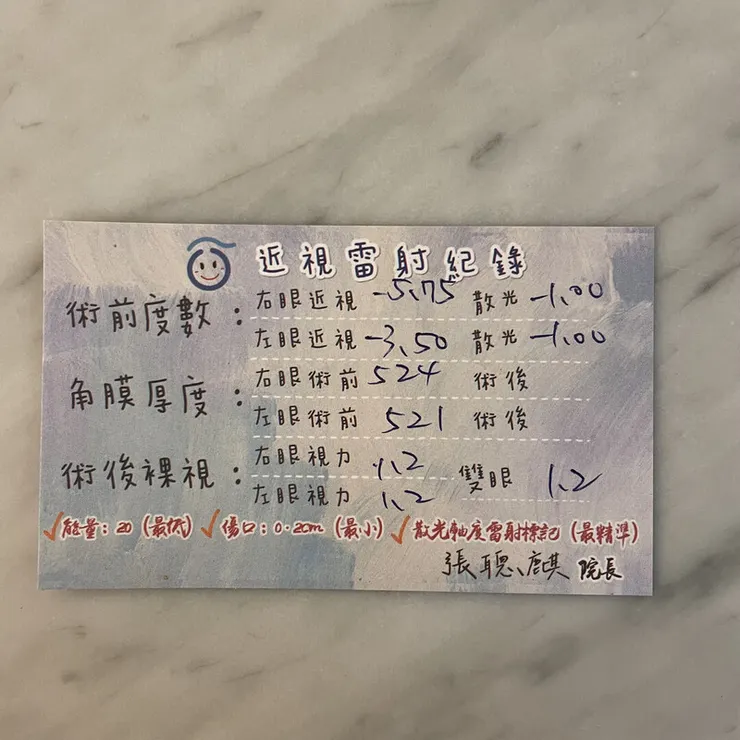 近視雷射紀錄
術前度數：右眼近視 -5.75 散光 -1.00
左眼近視 -3.50 散光 -1.00
角膜厚度：右眼術前 524 術後
左眼術前 521 術後
術後裸視：右眼視力 1.2 雙眼 1.2
左眼視力 1.2
✓能量：20（最低）✓傷口：0.2cm（最小）✓散光軸度雷射標記（最精準）
張聰麒 院長